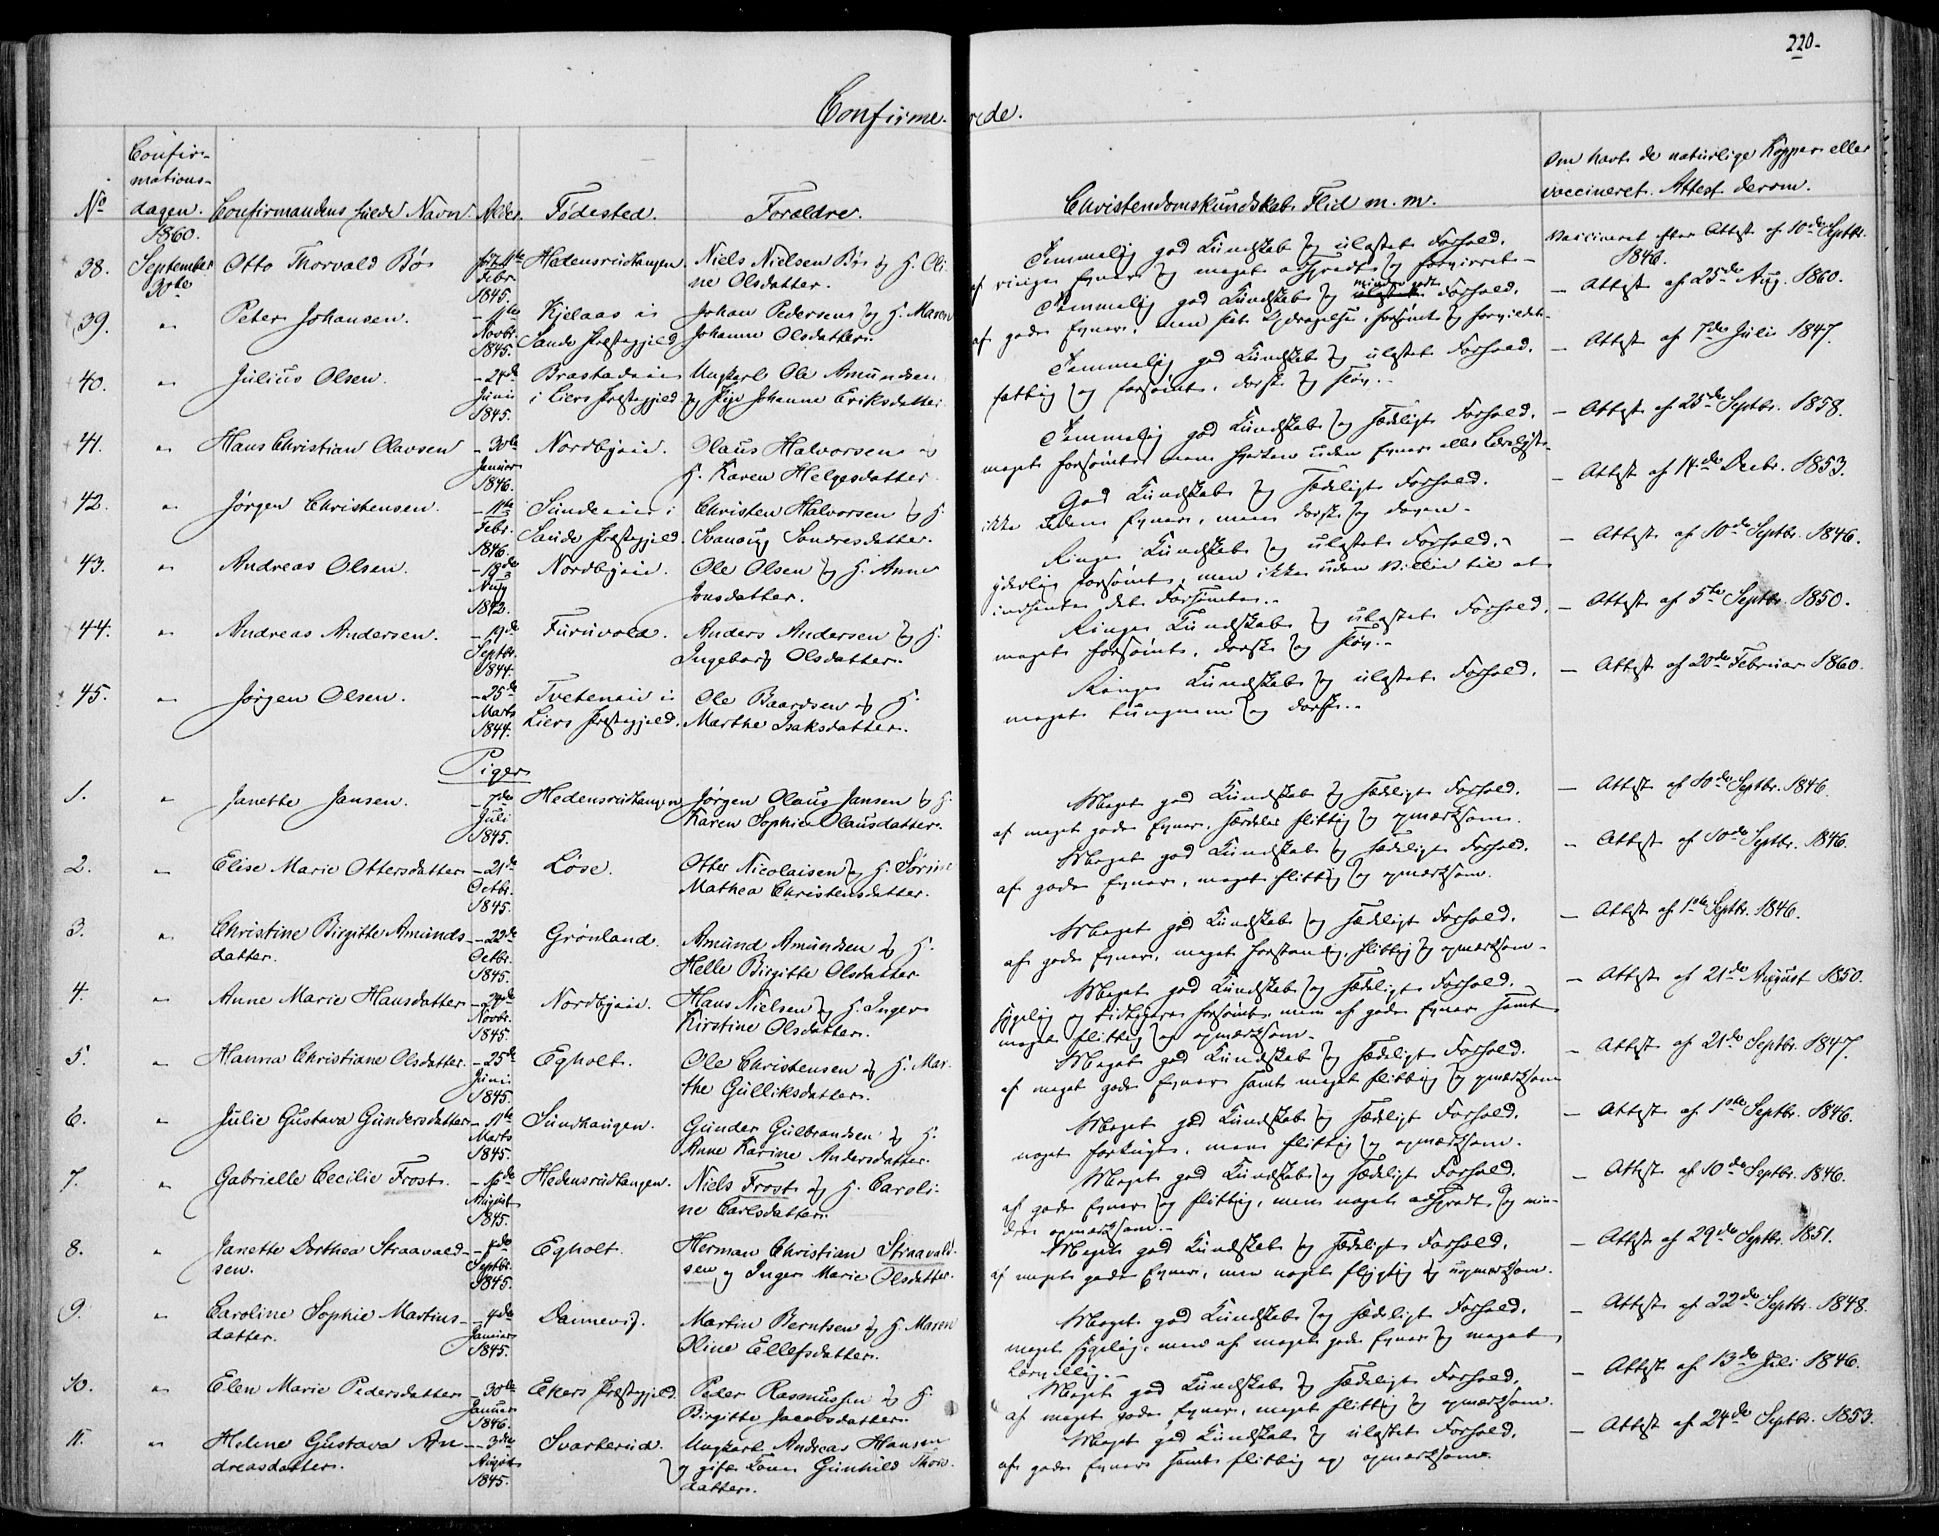 220.
Confirme- rede.
No
Confir-
mations-
dagen.
Confirmandens fulde Navn.
Alder.
Fødested.
Forældre.
Christendomskundskab. Flid m. m.
Om havt de naturlige Kopper eller
vaccineret. Attest derom.
1860.
38. September Otto Thorvald Bø 11te Hedensrudtangen. Niels Nielsen Bø og H. Oli- Temmelig god Kundskab og ulastet Forhold. Vaccineret efter Attest af 10de Septbr.
30te Febr. ne Olsdatter. af ringe Evner og meget adspredt og forvirret. 1846.
1845.
39. " Peter Johansen. – 11te Kjelaas i Johan Pedersen og H. Maren Temmelig god Kundskab og mindre godt Forhold. – Attest af 25de Aug. 1860.
Novbr. Sande Præstegjeld. Johanne Olsdatter. af gode Evner, men slet Opdragelse, forsømt og forvildet.
1845.
40. " Julius Olsen. – 24de Brastadeie Ungkarl Ole Amundsen Temmelig god Kundskab og ulastet Forhold. – Attest af 7de Juli 1847.
Juni i Liers Præstegjeld. og Pige Johanne Eriksdatter. fattig og forsømt, dorsk og sløv.
1845.
41. " Hans Christian Olavsen – 30te Nordbyeie. Olaus Halvorsen og Temmelig god Kundskab og sædeligt Forhold. – Attest af 25de Septbr. 1858.
Januar H. Karen Helgesdatter meget forsømt men hverken uden Evner eller Lærelyst.
1846.
42. " Jørgen Christensen. – 11te Sundeeie i Christen Halvorsen og H. God Kundskab og sædeligt Forhold. – Attest af 14de Decbr. 1853.
Febr. Sande Præstegjeld. Svanaug Sondresdatter. ikke uden Evner, men dorsk og doven.
1846.
43. " Andreas Olsen. – 19de Nordbyeie. Ole Olsen og H. Anne Ringe Kundskab og ulastet Forhold. – Attest af 10de Septbr. 1846.
Aug Jonsdatter. yderlig forsømt, men ikke uden Villie til at
1843. indhente det Forsømte.
44. " Andreas Andersen. – 19de Furuvold. Anders Andersen og H. Ringe Kundskab og ulastet Forhold. – Attest af 5te Septbr. 1850.
Septbr. Ingeborg Olsdatter. meget forsømt, dorsk og sløv.
1844.
45. " Jørgen Olsen. – 25de Tveteneie i Ole Baardsen og H. Ringe Kundskab og ulastet Forhold. – Attest af 20de Februar 1860.
Marts Liers Præstegjeld. Marthe Isaksdatter. meget tungnem og dorsk.
1844.
Piger
1. " Janette Jansen. – 7de Hedensrudtangen Jørgen Olaus Jansen og H. Meget god Kundskab og sædeligt Forhold. – Attest af 10de Septbr. 1846.
Juli Karen Sophie Olausdatter. af meget gode Evner, særdeles flittig og opmærksom.
1845.
2. " Elise Marie Ottersdatter – 21de Løse. Otter Nicolaisen og H. Sørine Meget god Kundskab og sædeligt Forhold. – Attest af 10de Septbr. 1846.
Octbr. Mathea Christensdatter. af gode Evner, meget flittig og opmærksom.
1845.
3. " Christine Birgitte Amunds- – 22de Grønland. Amund Amundsen og H. Meget god Kundskab og sædeligt Forhold. – Attest af 1ste Septbr. 1846.
datter. Octbr. Helle Birgitte Olsdatter af gode Evner, meget forstandig, flittig og opmærksom.
1845.
4. " Anne Marie Hansdatter – 24de Nordbyeie. Hans Nielsen og H. Inger Meget god Kundskab og sædeligt Forhold. – Attest af 21de August 1850.
Novbr. Kirstine Olsdatter. sygelig og tidligere forsømt, men af gode Evner samt
1845. meget flittig og opmærksom.
5. " Hanna Christiane Olsdatter. – 25de Egholt. Ole Christensen og H. Mar- Meget god Kundskab og sædeligt Forhold. – Attest af 21de Septbr. 1847.
Juni the Gulliksdatter. af meget gode Evner samt meget flittig og opmærksom
1845.
6. " Julie Gustava Gundersdatter – 11te Sundhaugen. Gunder Gulbrandsen og H. Meget god Kundskab og sædeligt Forhold. – Attest af 1ste Septbr. 1846.
Marts Anne Karine Andersdatter. noget forknyt, men flittig og opmærksom.
1845.
7. " Gabrielle Cecilie Frost. August Hedensrudtangen. Niels Frost og H. Caroli- Meget god Kundskab og sædeligt Forhold. – Attest af 10de Septbr. 1846.
1845. ne Carlsdatter. af gode Evner og flittig, men noget adspredt og min-
dre opmærksom.
8. " Janette Dorthea Straavald- Septbr. Egholt. Herman Christian Straavald- Meget god Kundskab og sædeligt Forhold. – Attest af 29de Septbr. 1851.
sen. 1845. sen og Inger Marie Olsdatter. af meget gode Evner, men noget flygtig og uopmærksom.
9. " Caroline Sophie Martins- – 4de Dannevig. Martin Berntsen og H. Maren Meget god Kundskab og sædeligt Forhold. – Attest af 22de Septbr. 1848.
datter. Januar Oline Ellefsdatter. meget sygelig, men af meget gode Evner og meget
1845. lærvillig.
10. " Elen Marie Pedersdatter – 30te Ekers Præstegjeld. Peder Rasmussen og H. Meget god Kundskab og sædeligt Forhold. – Attest af 13de Juli 1846.
Januar Birgitte Jacobsdatter. af meget gode Evner, meget flittig og opmærksom.
1846.
11. " Helene Gustava An- – 3die Svarterud. Ungkarl Andreas Hansen Meget god Kundskab og ulastet Forhold. – Attest af 24de Septbr. 1853.
dreasdatter. August og gifte Kone Gunhild Thors- af gode Evner samt flittig og opmærksom.
1845. datter.